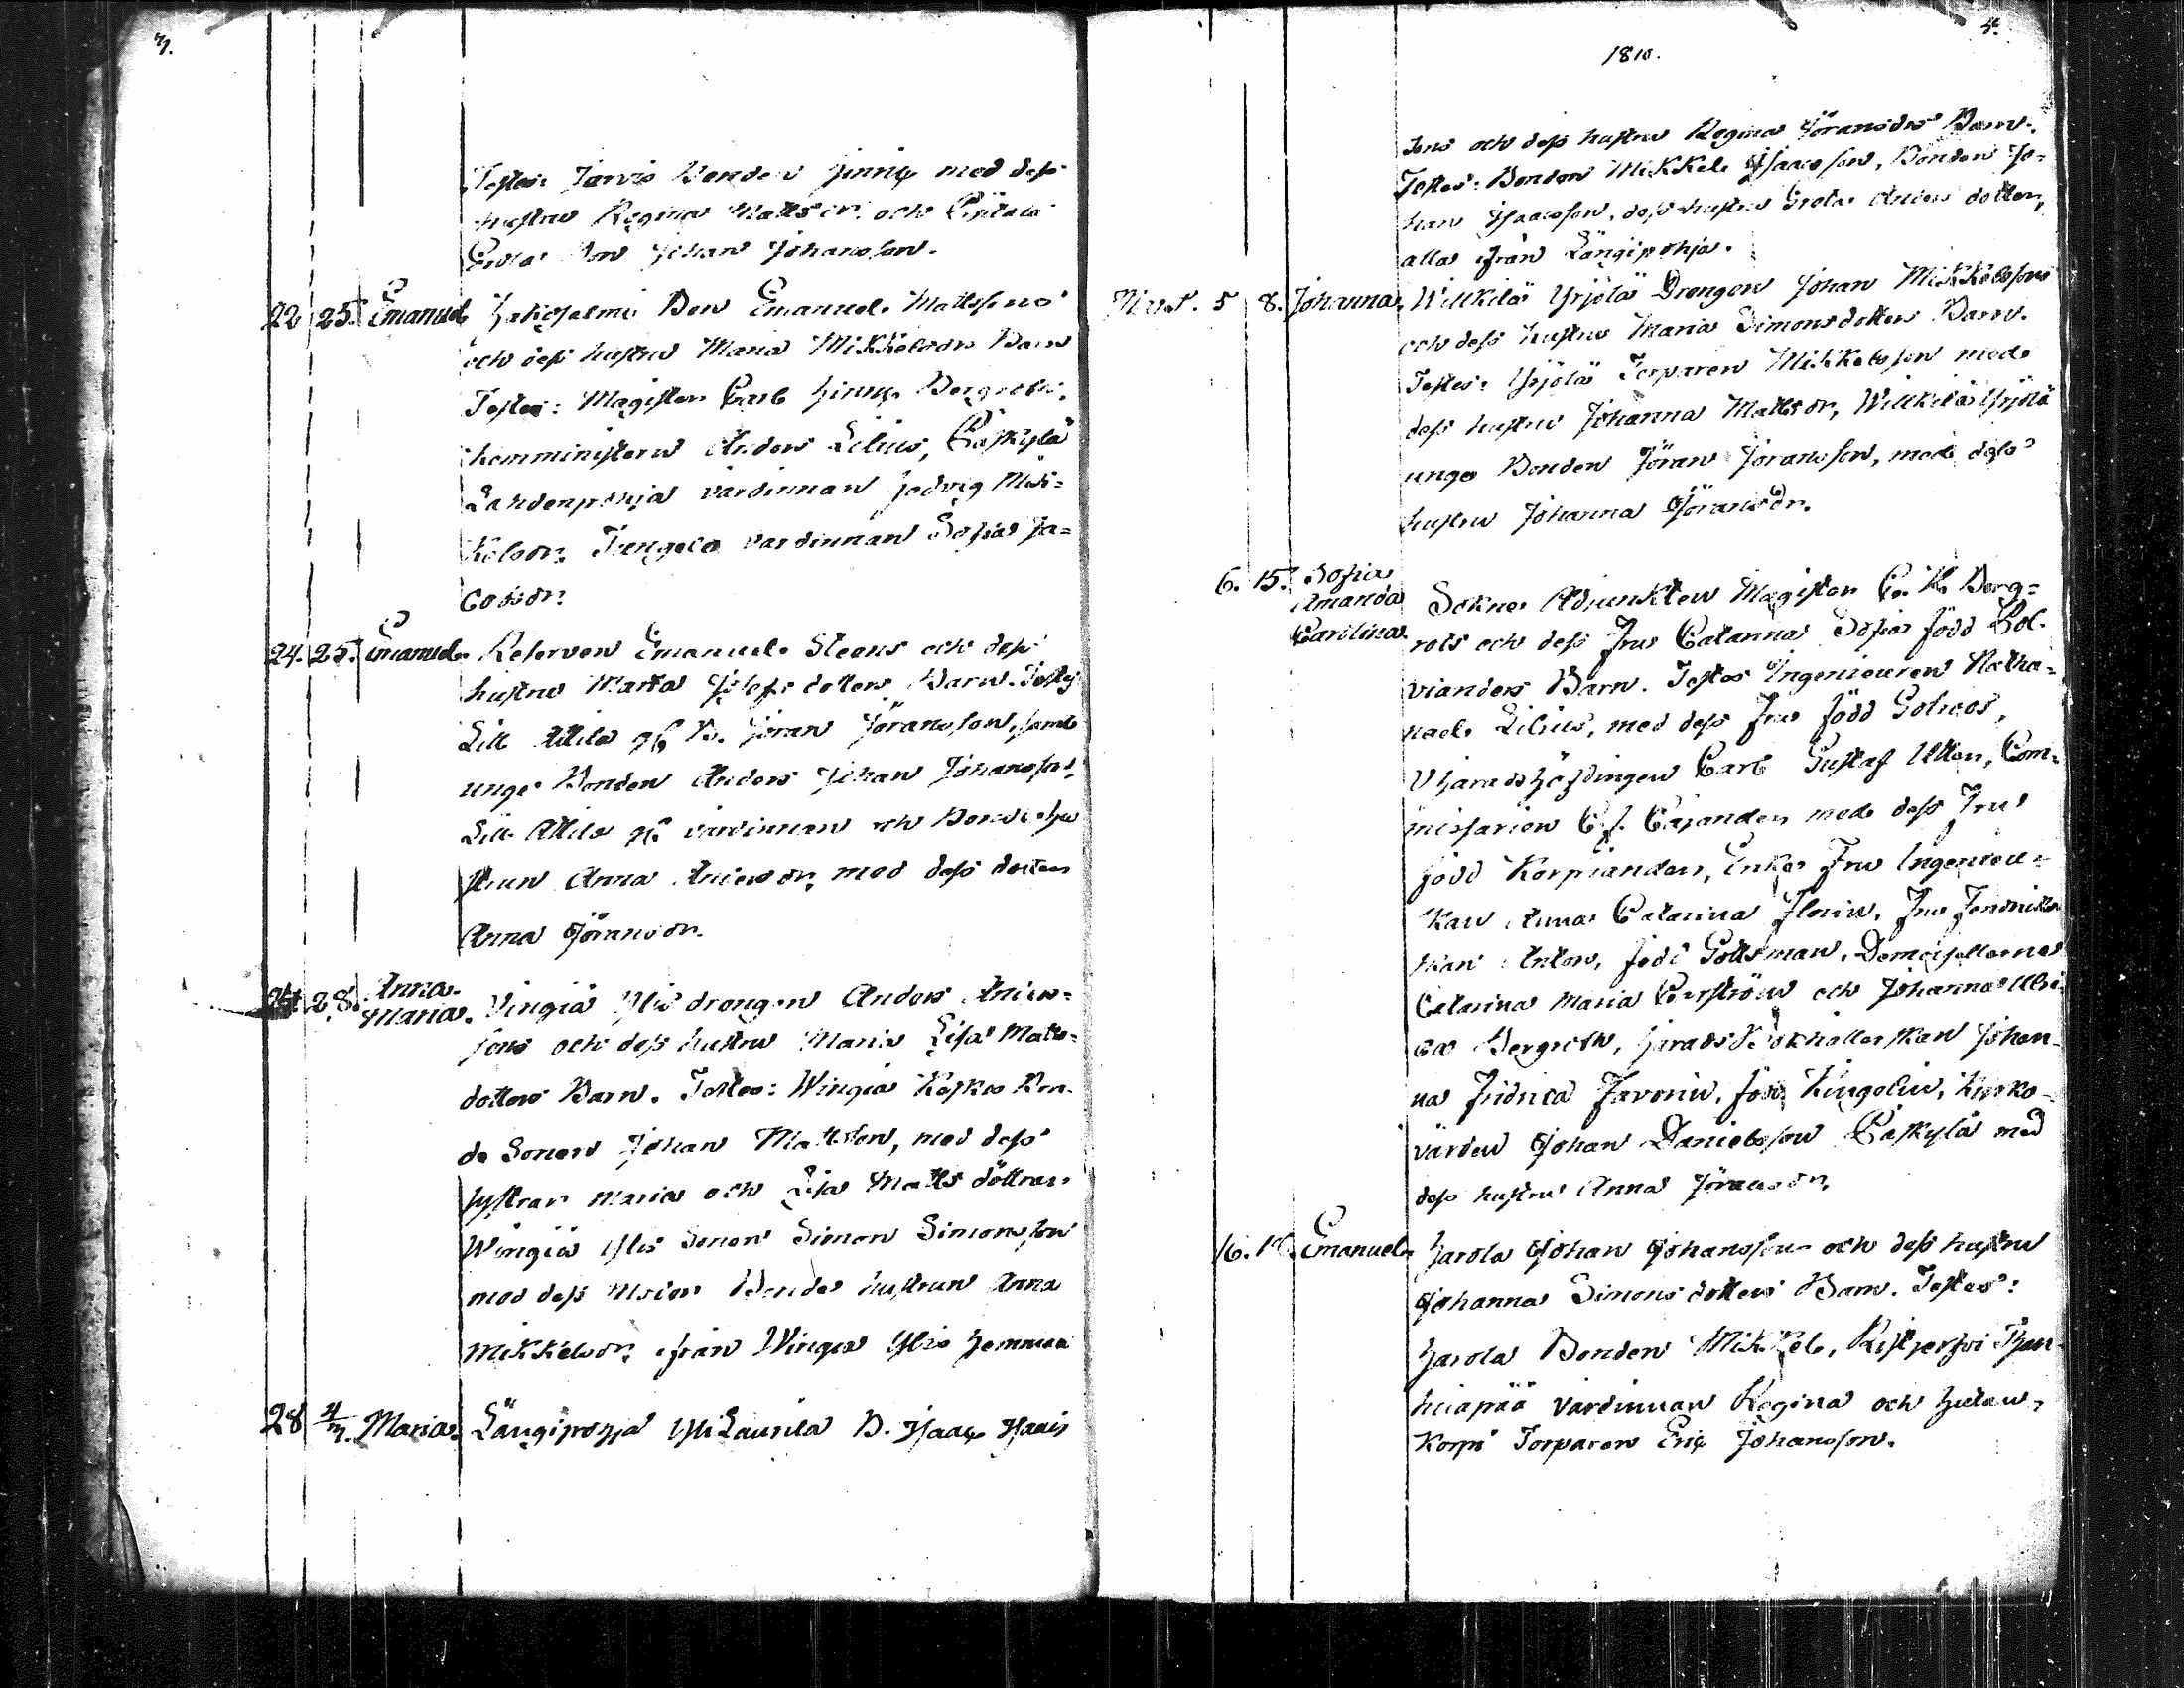 1810.
Testes: Järvis Bonden med dess
hustru Regina Mattsdr. och
Johan Johansson.
22 25. Emanuel Bon Emanuel Mattssons
och dess hustru Maria Mikkelsdrs Barn
Testes: Magister Carl Bergroth,
komministern Anders Lilius, Caskylä
Lahdenpohja värdinnan Hedvig Mik=
kelsdr. värdinnan Sofia Ja=
cobsdr:
24. 25. Emanuel Reserven Emanuel Steens och dess
hustru Maria dotters Barn. Testes
Lill B. Jöran Jöransson, samt
unge Bonden Anders Johan Johansson,
Lill värdinnan och Bonde hu
strun Anna med dess dotter
Anna Göransdr.
28. Anna
Maria. Vingiä Ylis drengen Anders
sons och dess hustru Maria Lisa Matts=
dotters Barn. Testes: Wingiä Koskis Bon-
de Sonen Johan Mattsson, med dess
systrar Maria och Lisa Matts döttrar
Wingiä Ylis Sonen Simon Simonsson
med dess Moder Bonde hustrun Anna
Mikkelsdr. från Wingiä Ylis hemman
28 4/7. Maria. Längipohja Yli Laurila B. Isaac Isaacs
sons och dess hustru Regina Göransdrs Barn.
Testes: Bonden Mikkel Isaacsson, Bonden Jo=
han Isaacsson, dess hustru Greta Anders dotter,
alla från Längipohja.
5 8. Johanna. Willkilä Yrjölä Drengen Johan Mikkelssons
och dess hustru Maria Simonsdotters Barn.
Testes: Yrjölä Torparen Mikkelsson med
dess hustru Johanna Mattsdr, Willkilä Yrjölä
unge Bonden Jöran Jöransson, med dess
hustru Johanna Göransdr.
6. 15. Sofia
Amanda
Carolina. Sokne Adjunkten Magister C. H. Berg=
rots och dess Fru Catarina Sofia född Pol-
vianders Barn. Testes Ingenieuren Natha=
nael Lilius, med dess Fru född
Häradshöfdingen Carl Gustaf Utter, Com=
missarien C. J. Cajander med dess Fru
född Korpiander, Enke Fru Ingenieu=
skan Anna Catarina Florin, Fru
född Gottsman, Demoisellerna
Catarina Maria och Johanna
Bergroth, Härads Johan=
na Fredrica född Kingelin, Kyrko=
värden Johan Danielsson Caskylä med
dess hustru Anna Jöransdr.
16. Emanuel Harola Johan Johanssons och dess hustru
Johanna Simons dotters Barn. Testes:
Harola Bonden Mikkel,
värdinnan Regina och
Korpi Torparen Eric Johansson.